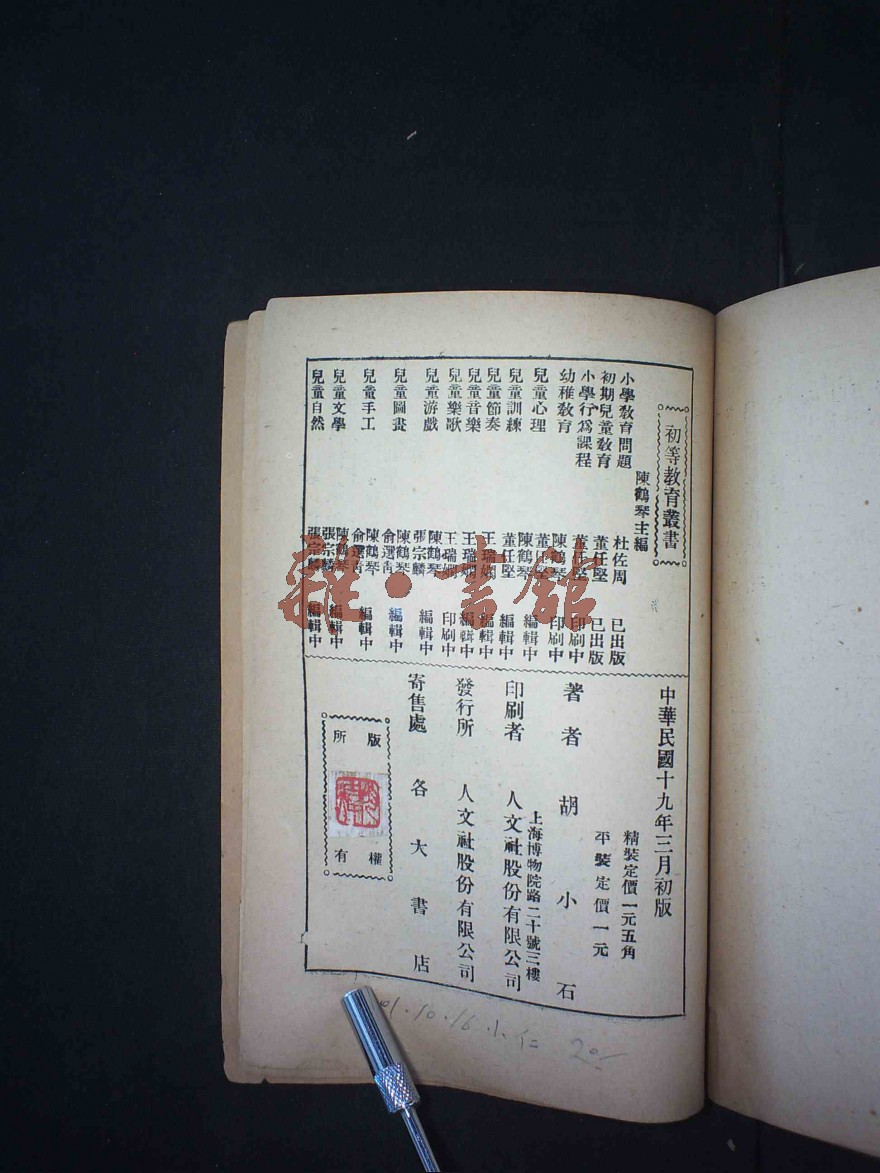 初等教育叢書
陳鶴琴主編
小學教育問題 杜佐周 已出版
初期兒童教育 董任堅 已出版
小學行爲課程 董任堅 印刷中
幼稚教育 陳鶴琴 印刷中
兒童心理 董任堅 陳鶴琴 編輯中
兒童訓練 董任堅 編輯中
兒童節奏 王瑞嫻 編輯中
兒童音樂 王瑞嫻 編輯中
兒童樂歌 王瑞嫻 印刷中
兒童游戲 陳鶴琴 張宗麟 編輯中
兒童圖畫 陳鶴琴 俞選清 編輯中
兒童手工 陳鶴琴 俞選青 編輯中
兒童文學 陳鶴琴 張宗麟 編輯中
兒童自然 張宗麟 編輯中
中華民國十九年三月初版
精裝定價一元五角
平裝定價一元
著者 胡小石
上海博物院路二十號三樓
印刷者 人文社股份有限公司
發行所 人文社股份有限公司
寄售處 各大書店
版權
所有
雜·書館